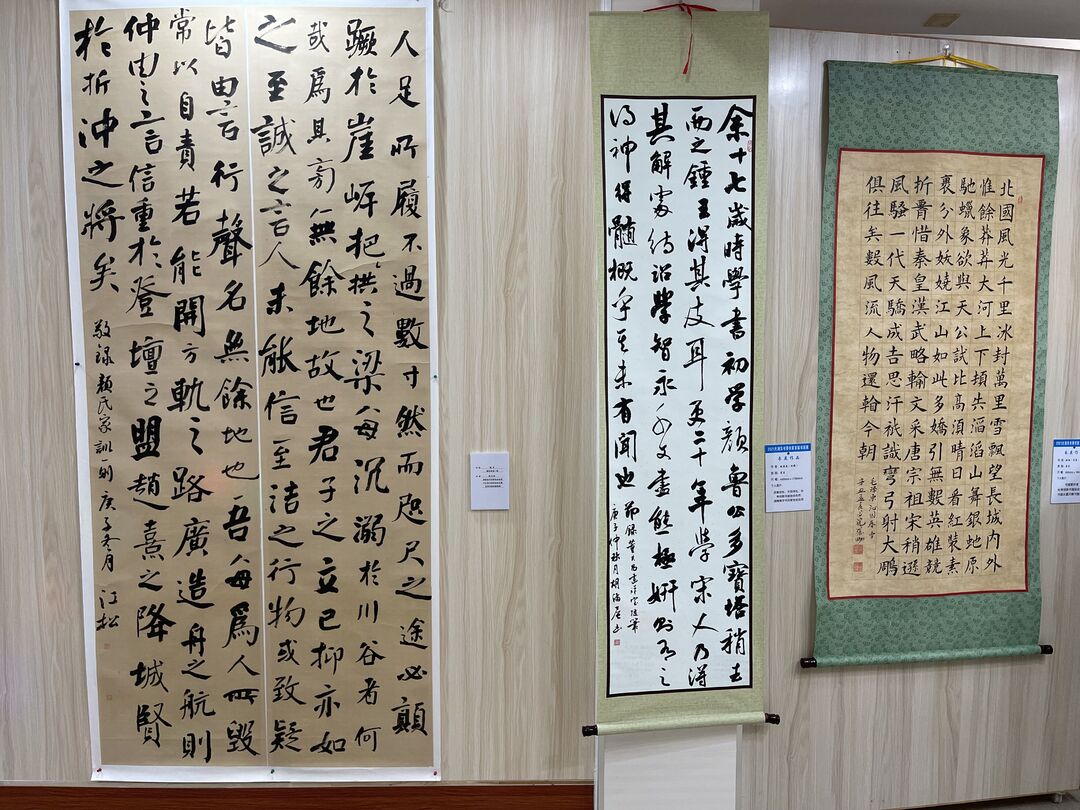 人足所履不過數寸然而咫尺之途必顛
蹶於崖岸把拱之梁每沉溺於川谷者何
哉爲其旁無餘地故也君子之立己抑亦如
之至誠之言人未能信至潔之行物或致疑
皆由言行聲名無餘地也吾每爲人所毀
常以自責若能開方軌之路廣造舟之航則
仲由之言信重於登壇之盟趙熹之降城賢
於折沖之將矣
敬錄顏氏家訓一則庚子冬月 江松
余十七歲時學書初學顏魯公多寶塔稍去
而之鍾王得其皮耳更二十年學宋人乃得
其解處待詔學智永千文盡態極妍則有之
得神得髓概乎其未有聞也
節錄董其昌畫禪室隨筆
庚子仲秋月胡海
北國風光千里冰封萬里雪飄望長城內外
惟餘莽莽大河上下頓失滔滔山舞銀蛇原
馳蠟象欲與天公試比高須晴日看紅裝素
裹分外妖嬈江山如此多嬌引無數英雄競
折腰惜秦皇漢武略輸文采唐宗宋祖稍遜
風騷一代天驕成吉思汗祇識彎弓射大鵰
俱往矣數風流人物還看今朝
毛澤東沁園春雪